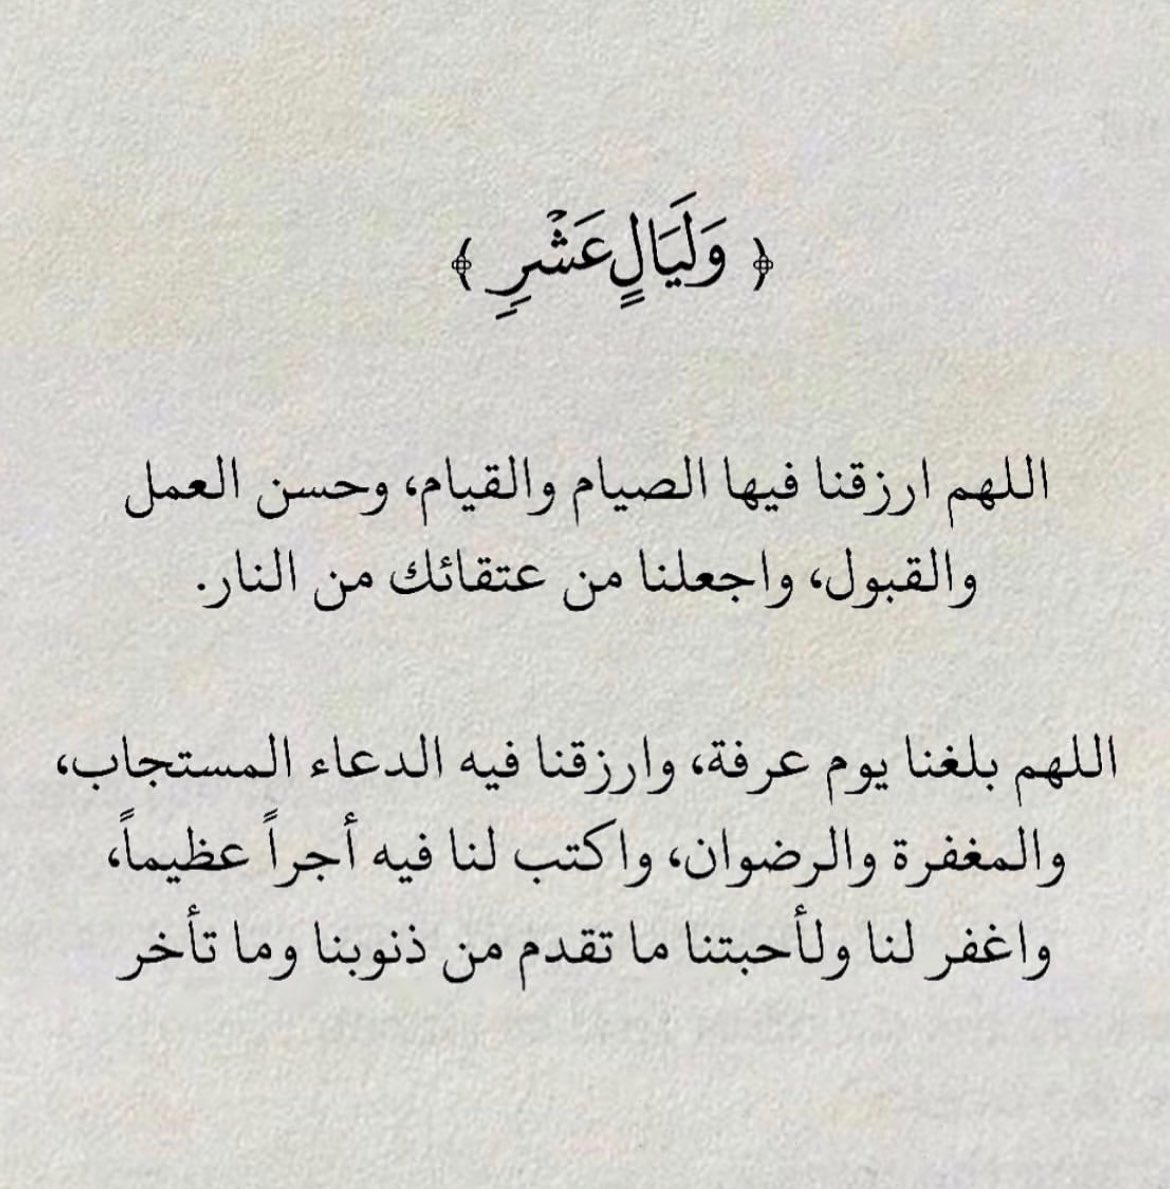 ﴿ وَلَيَالٍ عَشْرٍ ﴾
اللهم ارزقنا فيها الصيام والقيام، وحسن العمل
والقبول، واجعلنا من عتقائك من النار.
اللهم بلغنا يوم عرفة، وارزقنا فيه الدعاء المستجاب،
والمغفرة والرضوان، واكتب لنا فيه أجراً عظيماً،
واغفر لنا ولأحبتنا ما تقدم من ذنوبنا وما تأخر